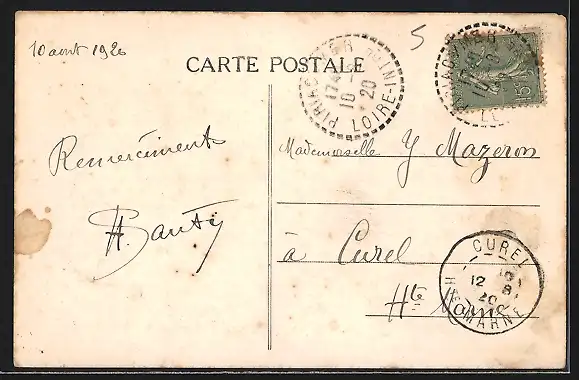 10 août 1920
5
CARTE POSTALE
PIRIAC
LOIRE-INF
17 45
10 - 8
20
15
Remerciements
Mademoiselle Y Mazeron
à Curel
Hte Marne
CUREL
12 8
20
HTE MARNE